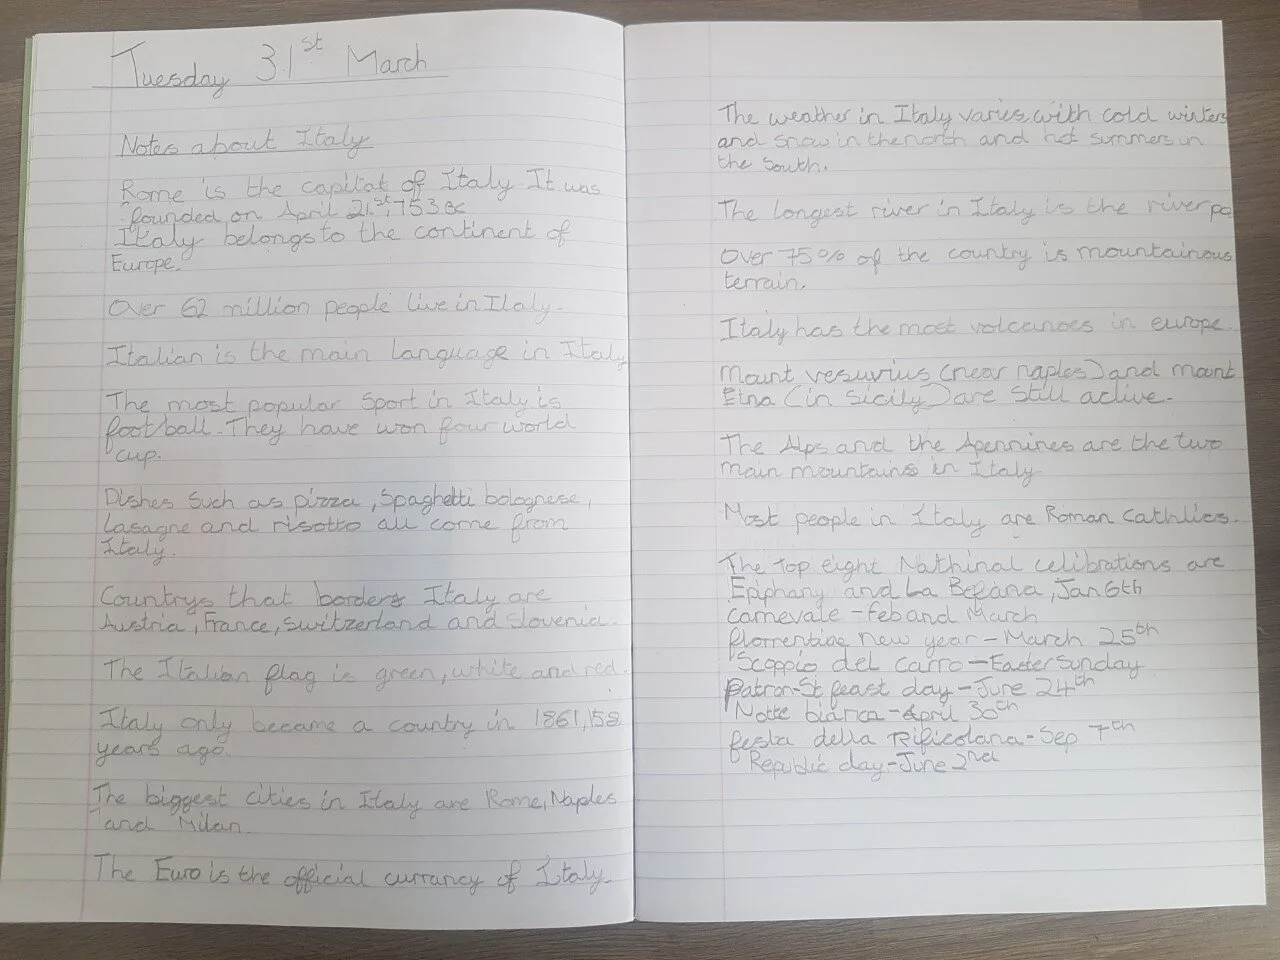 Tuesday 31st March
Notes about Italy
Rome is the capital of Italy. It was
founded on April 21st, 753 BC
Italy belongs to the continent of
Europe.
Over 62 million people live in Italy.
Italian is the main language in Italy
The most popular sport in Italy is
football. They have won four world
cup.
Dishes such as pizza, Spaghetti bolognese,
Lasagne and risotto all come from
Italy.
Countrys that borders Italy are
Austria, France, Switzerland and Slovenia.
The Italian flag is green, white and red.
Italy only became a country in 1861, 158
years ago.
The biggest cities in Italy are Rome, Naples
and Milan.
The Euro is the official currancy of Italy.
The weather in Italy varies with cold winters
and snow in the north and hot summers in
the South.
The longest river in Italy is the river po
Over 75% of the country is mountainous
terrain.
Italy has the most volcanoes in europe.
Mount vesuvius (near naples) and mount
Etna (in sicily) are still active.
The Alps and the Apennines are the two
main mountains in Italy
Most people in Italy are Roman Cathlics.
The top eight Nathinal celibrations are
Epiphany and La Befana, Jan 6th
Carnevale - feb and March
florrentine new year - March 25th
Scoppio del carro - Easter Sunday
Patron-St feast day - June 24th
Notte bianca - April 30th
festa della Rificolana - Sep 7th
Republic day - June 2nd